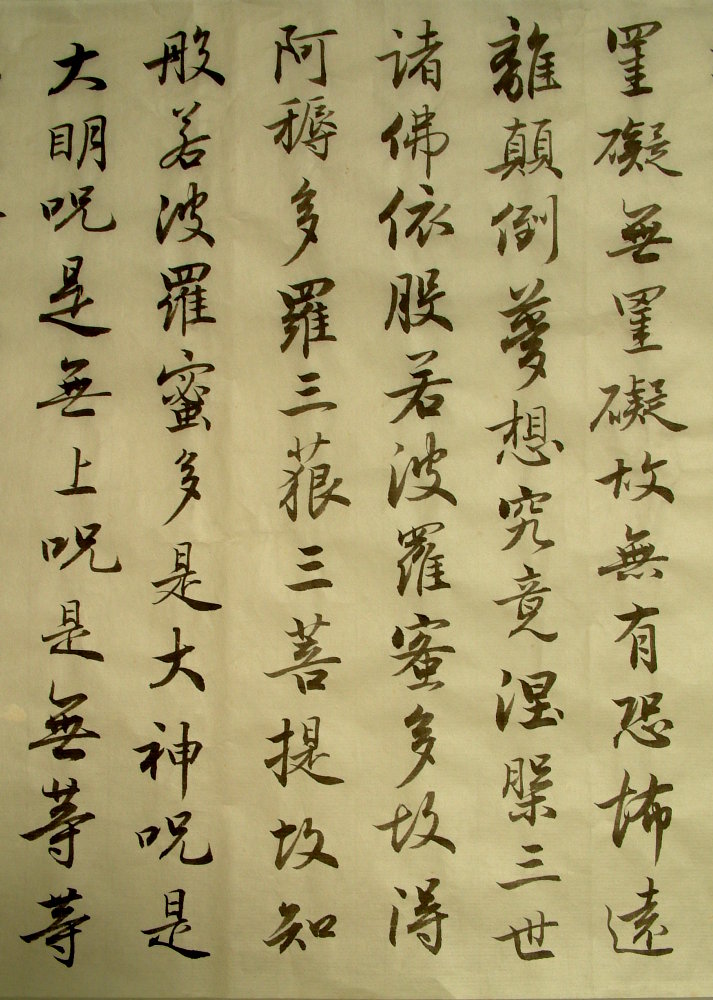 罣礙無罣礙故無有恐怖遠
離顛倒夢想究竟涅槃三世
諸佛依般若波羅蜜多故得
阿耨多羅三藐三菩提故知
般若波羅蜜多是大神呪是
大明呪是無上呪是無等等